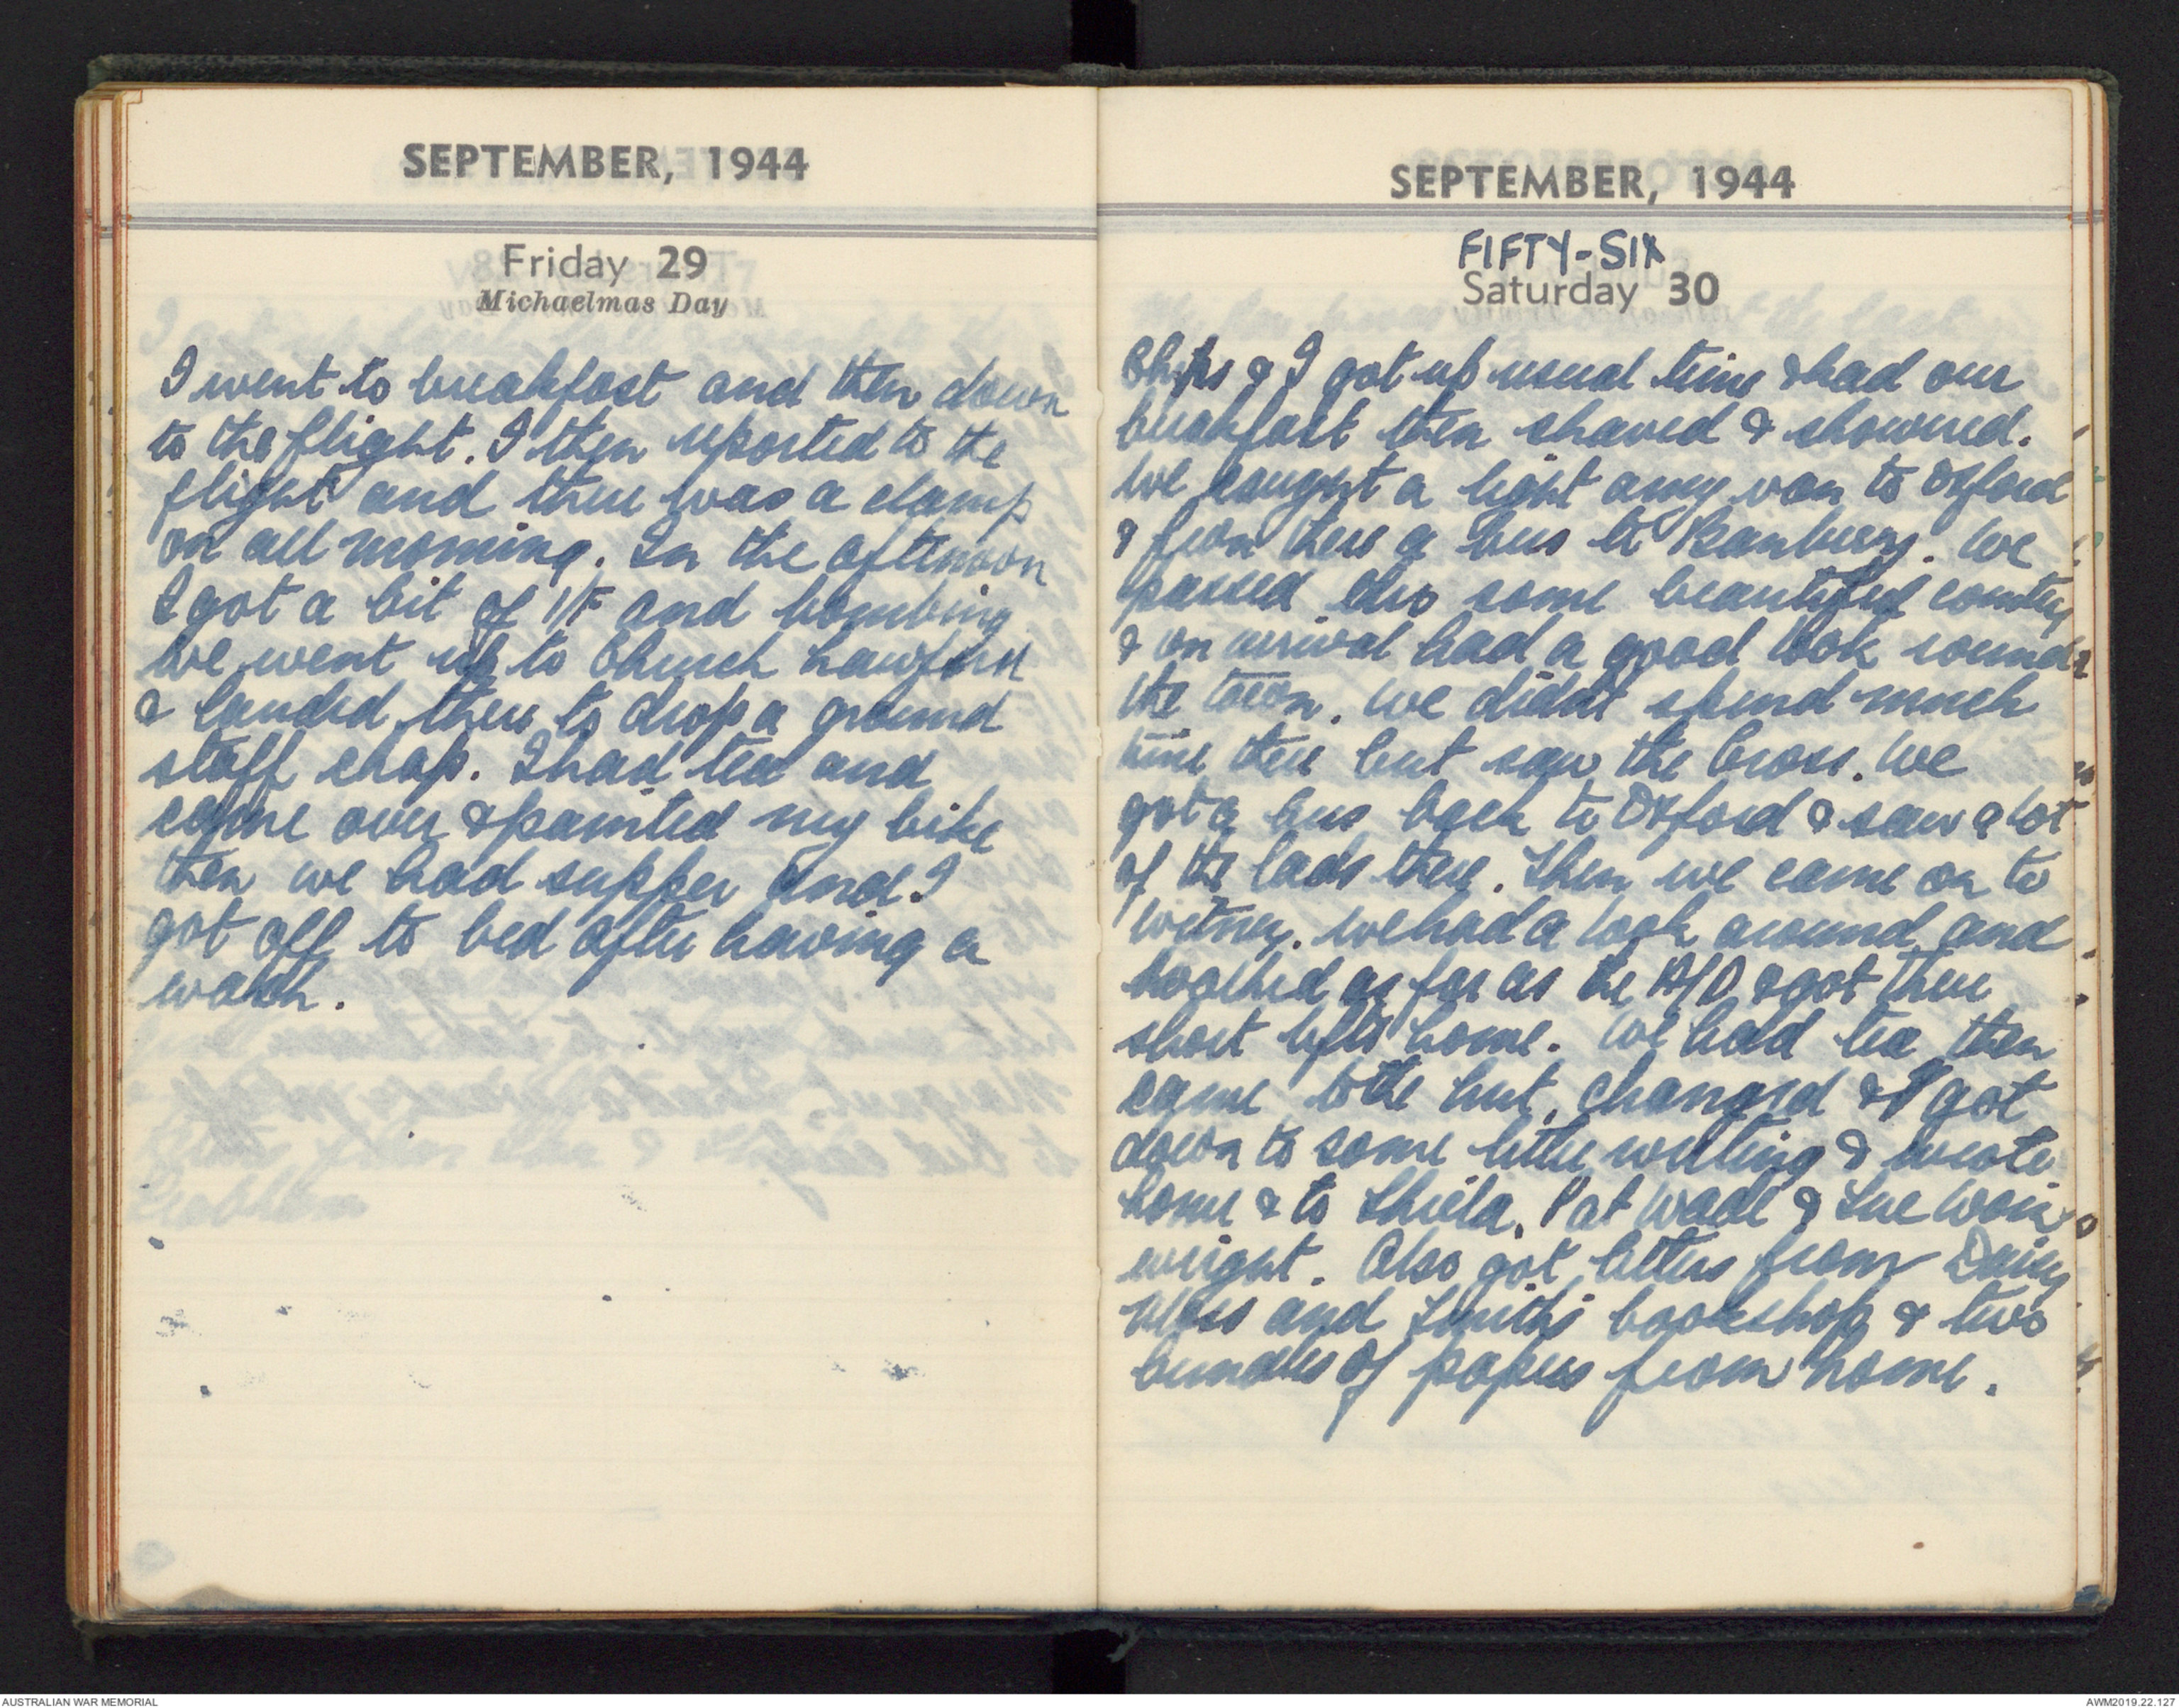 SEPTEMBER, 1944
Friday 29
Michaelmas Day
I went to breakfast and then down
to the flight. I then reported to the
flight and there was a clamp
on all morning. In the afternoon
I got a bit of I/F and bombing
we went up to Church Lawford
& landed there to drop a ground
staff chap. I had tea and
came over & painted my bike
then we had supper and I
got off to bed after having a
wash.
SEPTEMBER, 1944
FIFTY-SIX
Saturday 30
Chips & I got up usual time & had our
breakfast then shaved & showered.
We caught a light army van to Oxford
& from there a bus to Banbury. We
passed thro some beautiful country
& on arrival had a good look round
the town. We didnt spend much
time there but saw the Cross. We
got a bus back to Oxford & saw a lot
of the lads there. Then we came on to
Witney. We had a look around and
as far as the A/D & got three
short lifts home. We had tea then
came to the hut, changed & I got
down to some letter writing & wrote
home & to Shiela, Pat Wade & Sue Wain
wright. Also got letters from Daisy
and Smiths bookshop & two
bundles of papers from home.
AUSTRALIAN WAR MEMORIAL
AWM2019.22.127